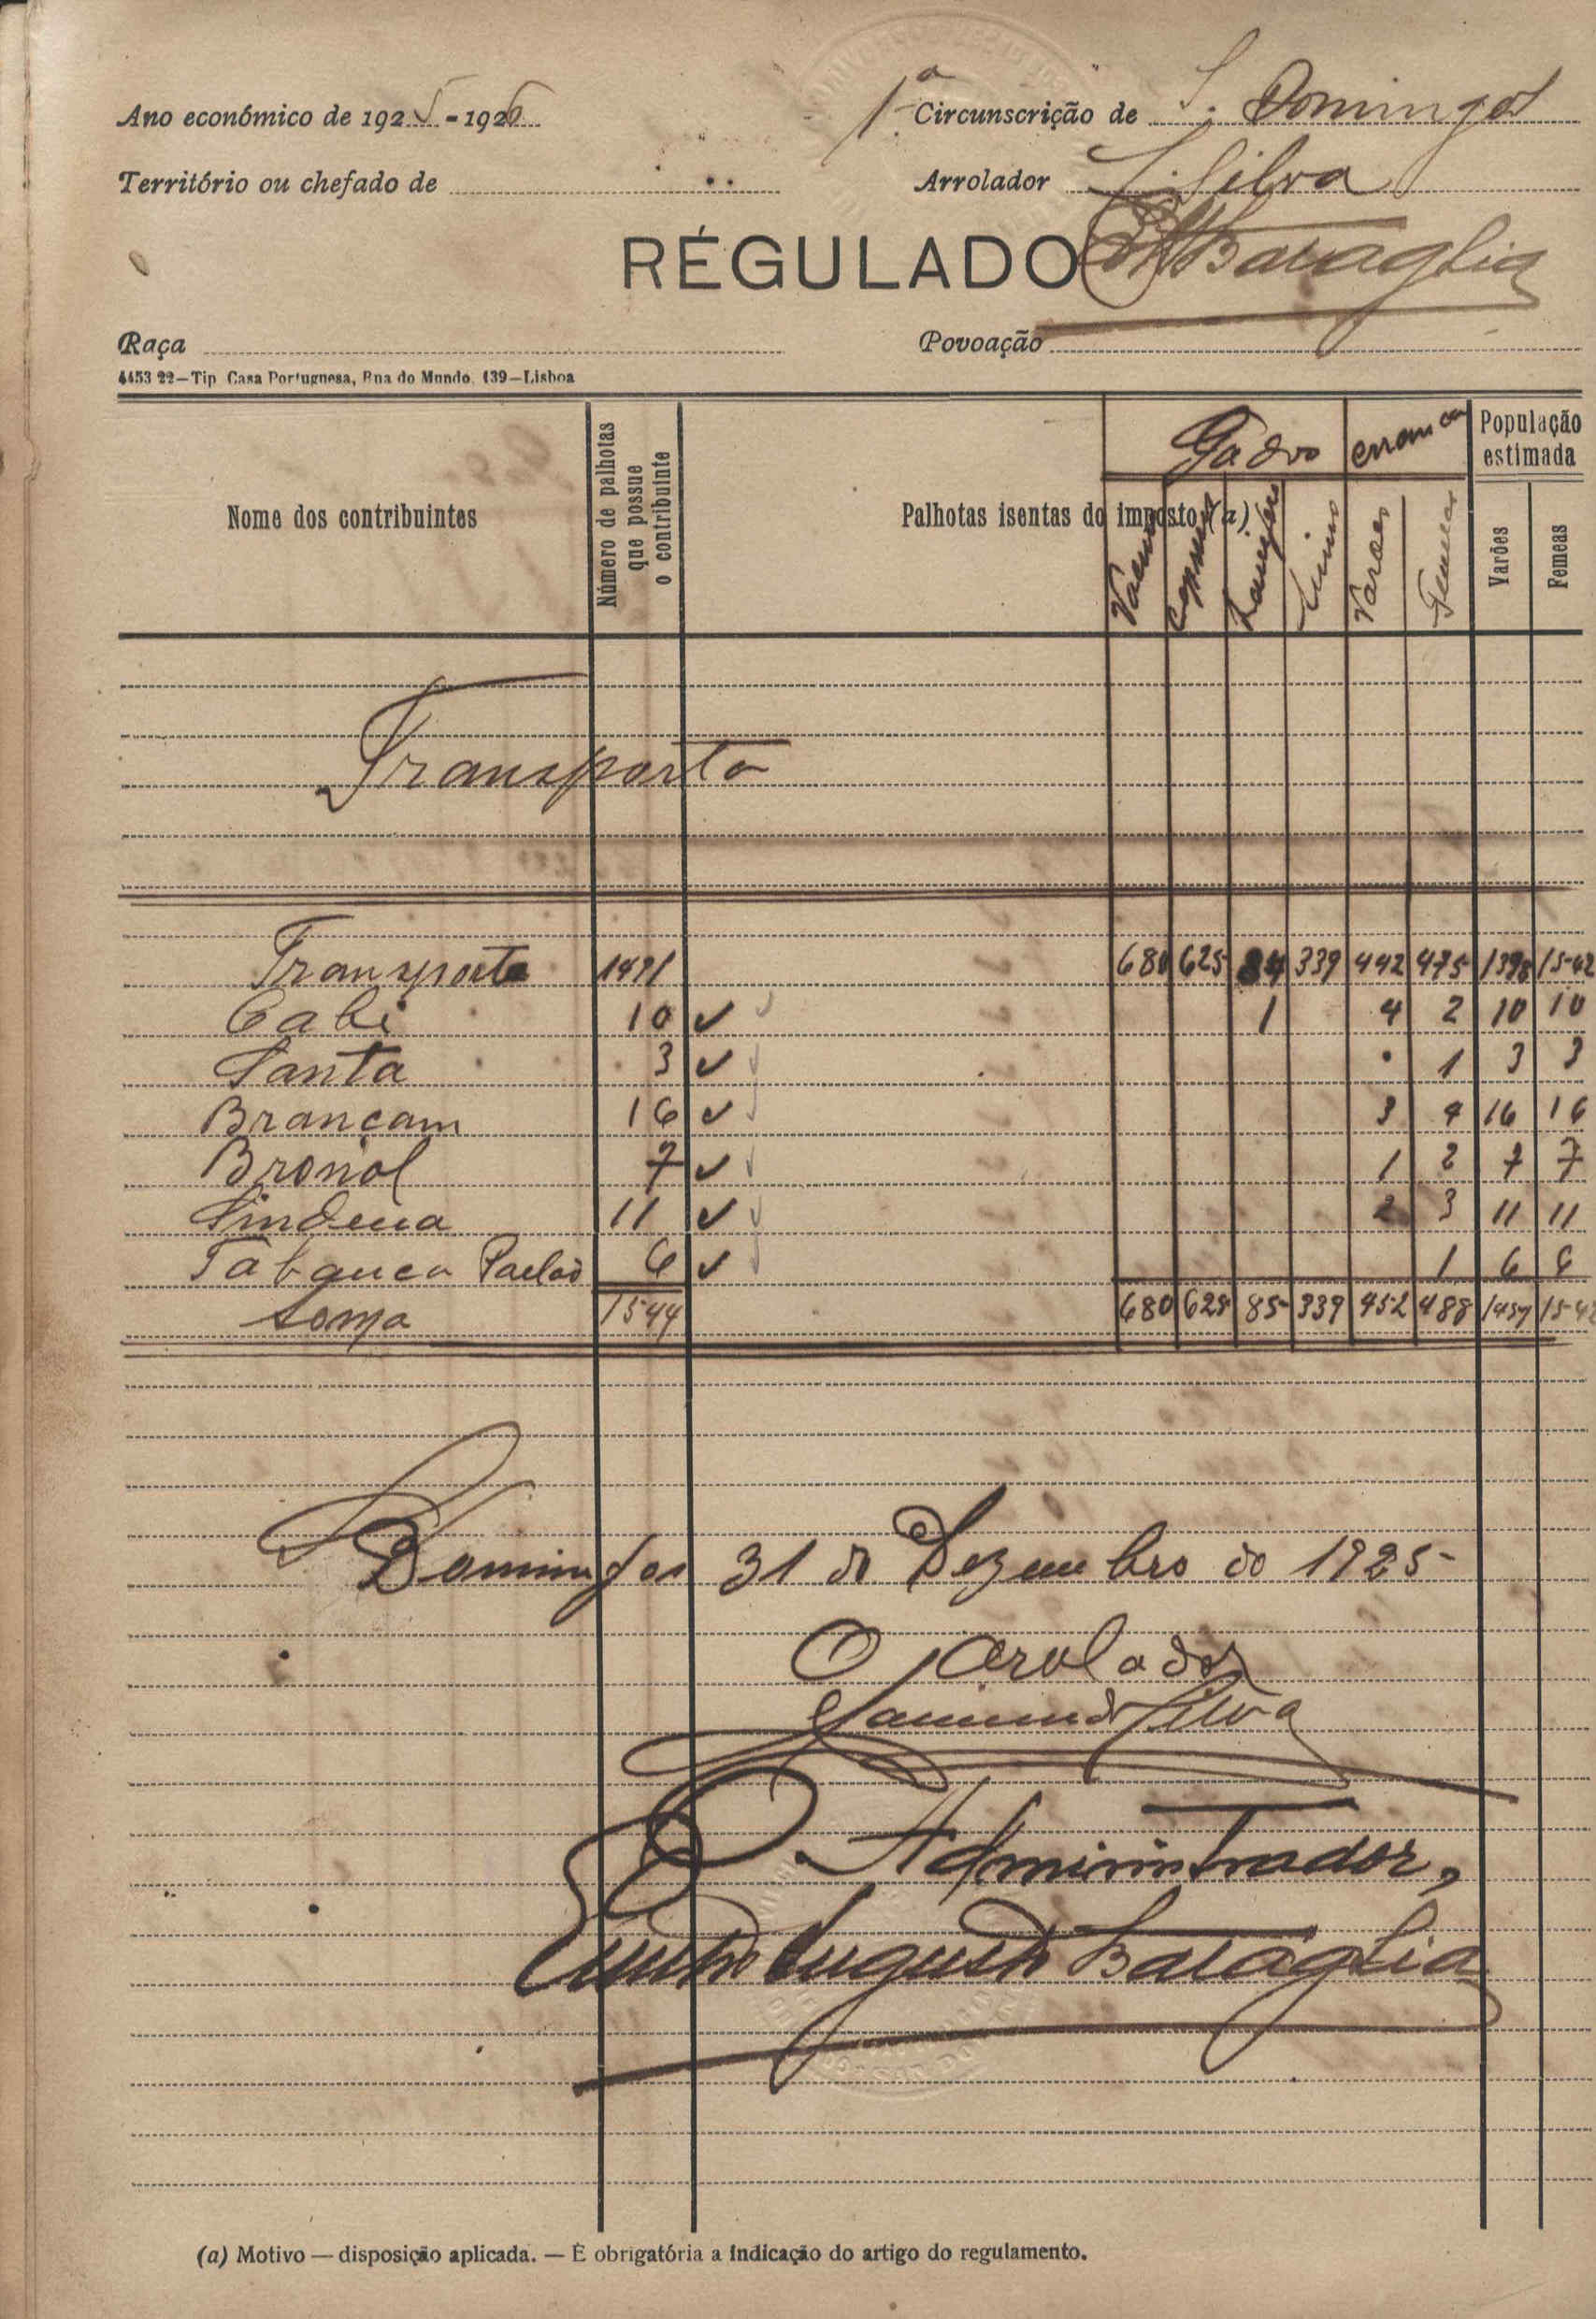 Ano económico de 1925-1926
1ª Circunscrição de S. Domingos
Território ou chefado de
Arrolador Silva
RÉGULADO
Bataglia
Raça
Povoação
4453 22—Tip Casa Portuguesa, Rua do Mundo, 139—Lisboa
Nome dos contribuintes
Número de palhotas que possue o contribuinte
Palhotas isentas do imposto (a)
Gado
População estimada
Varões
Femeas
Transporte
Transporte 1491 680 625 84 339 442 475 1398
Cabi 10 ✓ 1 4 2 10 10
Santa 3 ✓ • 1 3 3
Brançam 16 ✓ 3 4 16 16
Bronol 7 ✓ 1 2 7 7
Sindena 11 ✓ 2 3 11 11
Tabanca 6 ✓ 1 6 6
Soma 1544 680 625 85 339 452 488
S. Domingos 31 de Dezembro de 1925
O Arolador
Silva
O Administrador,
Augusto Bataglia
(a) Motivo — disposição aplicada. — É obrigatória a indicação do artigo do regulamento.